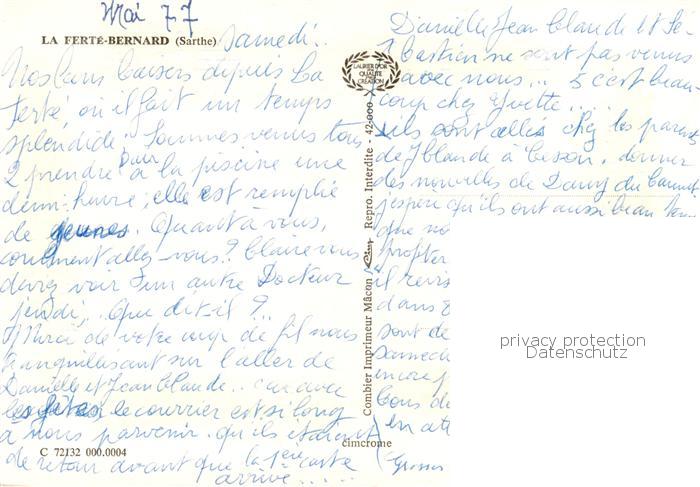 Mai 77
LA FERTÉ-BERNARD (Sarthe)
Samedi..
Nos bons baisers depuis La
Ferté, où il fait un temps
splendide. Sommes venus tous
2 prendre Dam à la piscine une
demi-heure; elle est remplie
de jeunes. Quant à vous,
comment allez-vous? Claire vous
devez voir un autre Docteur
jeudi,.. que dit-il?..
Merci de votre coup de fil nous
tranquillisant sur l'aller de
Danielle et Jean Claude.. car avec
les fêtes le courrier est si long
à nous parvenir. qu'ils étaient
de retour avant que la 1ère carte
arrive.....
C 72132 000.0004
LAURIER D'OR
DE LA
QUALITÉ
CRÉATION
Combier Imprimeur Mâcon Cim Repro. Interdite - 42.000
cimcrome
Danielle Jean Claude et Sé-
bastien ne sont pas venus
avec nous... 5 c'est beau-
coup chez Yvette....
ils sont allés chez les parents
de J Claude à donner
des nouvelles de Dany du
j'espère qu'ils ont aussi beau tem-
que no
profiter
il revis
dans
sont de
Samedi
encore
bons
en att
(Grosses
privacy protection
Datenschutz